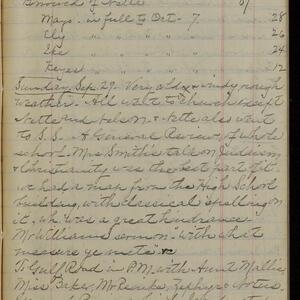 Borrowed of Nette
Mays - in full to Oct - 7 28
Ely " " " " 26
Eke " " " " 24
Keyes " " " " 212
Sunday, Sep. 27. Very cold, windy, rough
weather. All went to Church except
Nette and Nelson. Nette also went
to S.S. A General Review of whole
school. Mrs Smith's talk on Judaism
& Christianity was the best part of it.
We had a map from the High School
building, with classical spelling on
it, wh. was a great hindrance.
Mr Williams sermon "with what
measure ye mete" &c
To Gulf Road in P.M. with Aunt Mallie,
Miss Baker, Mr